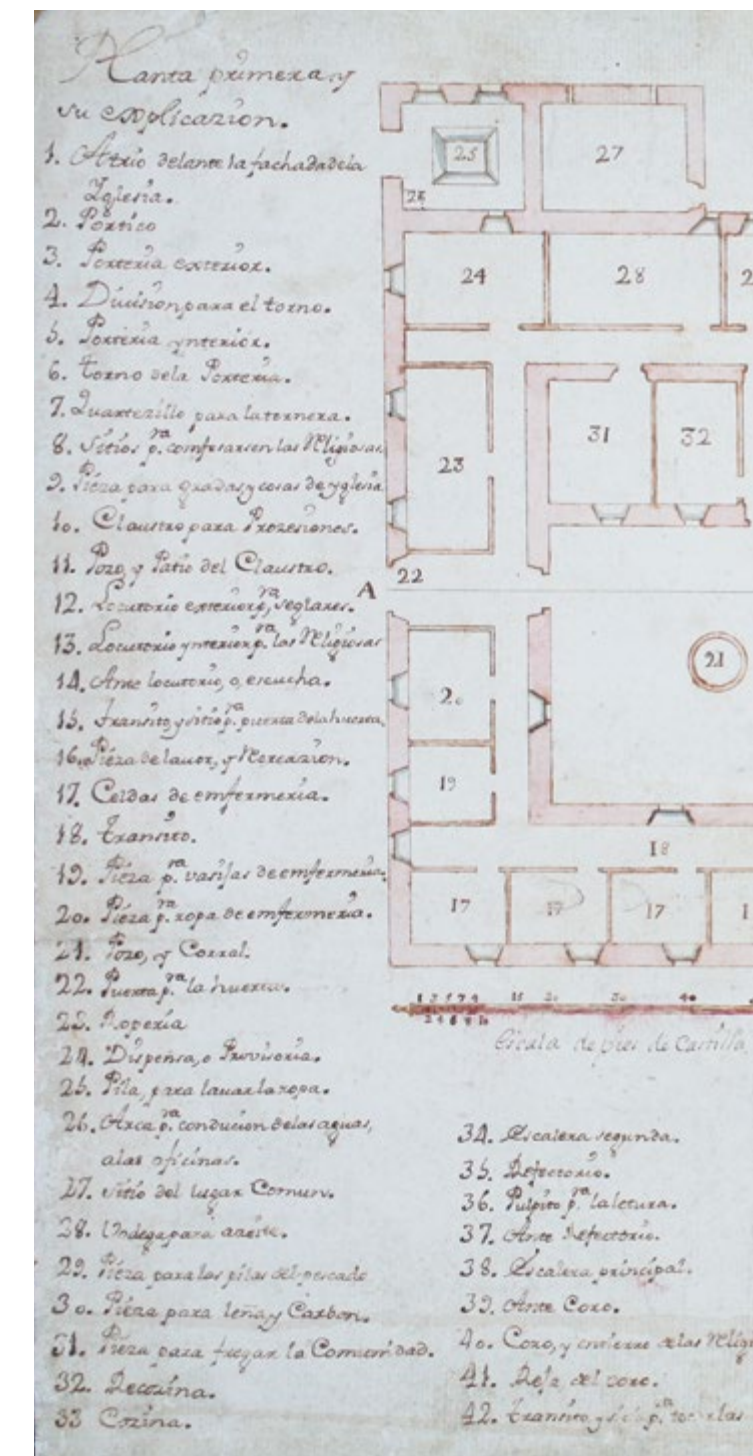 Planta primera y
su explicazion.
1. Atrio delante la fachada de la
Yglesia.
2. Portico
3. Porteria exterior.
4. Division para el torno.
5. Porteria ynterior.
6. torno de la Porteria.
7. Quartezillo para la tornera.
8. Sitios p.ra comfesarsen las Religiosas
9. Pieza para gradas y cosas de yglesia
10. Claustro para Prozesiones.
11. Pozo, y Patio del Claustro.
12. Locutorio exterior p.ra seglares.
13. Locutorio ynterior p.ra las Religiosas
14. Ante locutorio, o, escucha.
15. Transito, y sitio p.ra puerta de la huerta
16. Pieza de lavor, y Recreazion.
17. Celdas de emfermeria.
18. transito.
19. Pieza p.ra vasijas de emfermeria.
20. Pieza p.ra ropa de emfermeria.
21. Pozo, y Corral.
22. Puerta p.ra la huerta.
23. Roperia
24. Dispensa, o Provisoria.
25. Pila, para lavar la ropa.
26. Arca p.ra conducion de las aguas,
a las oficinas.
27. sitio del lugar Comun.
28. para azeite.
29. Pieza para las pilas del pescado
30. Pieza para leña y Carbon.
31. Pieza para fregar la Comunidad.
32. Recozina.
33 Cozina.
25
27
26
24
28
2
23
31
32
22
A
20
21
19
18
17
17
17
1
1 3 5 7 9 15 20 30 40
2 4 6 8 10
Escala de pies de Castilla
34. Escalera segunda.
35. Refectorio.
36. Pulpito p.ra la letura.
37. Ante Refectorio.
38. Escalera principal.
39. Ante Coro.
40. Coro, y entierro de las Relig
41. Reja del coro.
42. transito y p.ra las